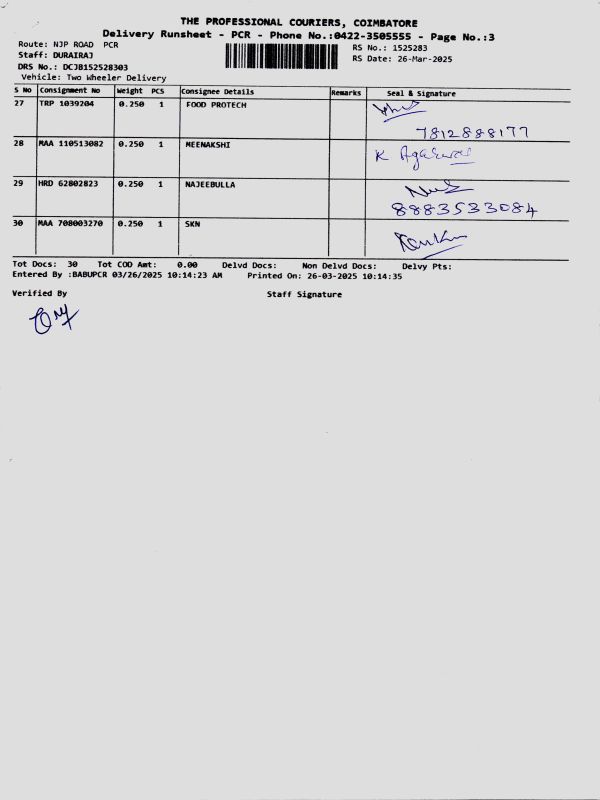 THE PROFESSIONAL COURIERS, COIMBATORE
Delivery Runsheet - PCR - Phone No.:0422-3505555 - Page No.:3
Route: NJP ROAD PCR
RS No.: 1525283
Staff: DURAIRAJ
RS Date: 26-Mar-2025
DRS No.: DCJB152528303
Vehicle: Two Wheeler Delivery
S No Consignment No Weight PCS Consignee Details Remarks Seal & Signature
27 TRP 1039204 0.250 1 FOOD PROTECH
7812888177
28 MAA 110513082 0.250 1 MEENAKSHI K Agarwal
29 HRD 62802823 0.250 1 NAJEEBULLA
8883533084
30 MAA 708003270 0.250 1 SKN
Tot Docs: 30 Tot COD Amt: 0.00 Delvd Docs: Non Delvd Docs: Delvy Pts:
Entered By :BABUPCR 03/26/2025 10:14:23 AM Printed On: 26-03-2025 10:14:35
Verified By Staff Signature